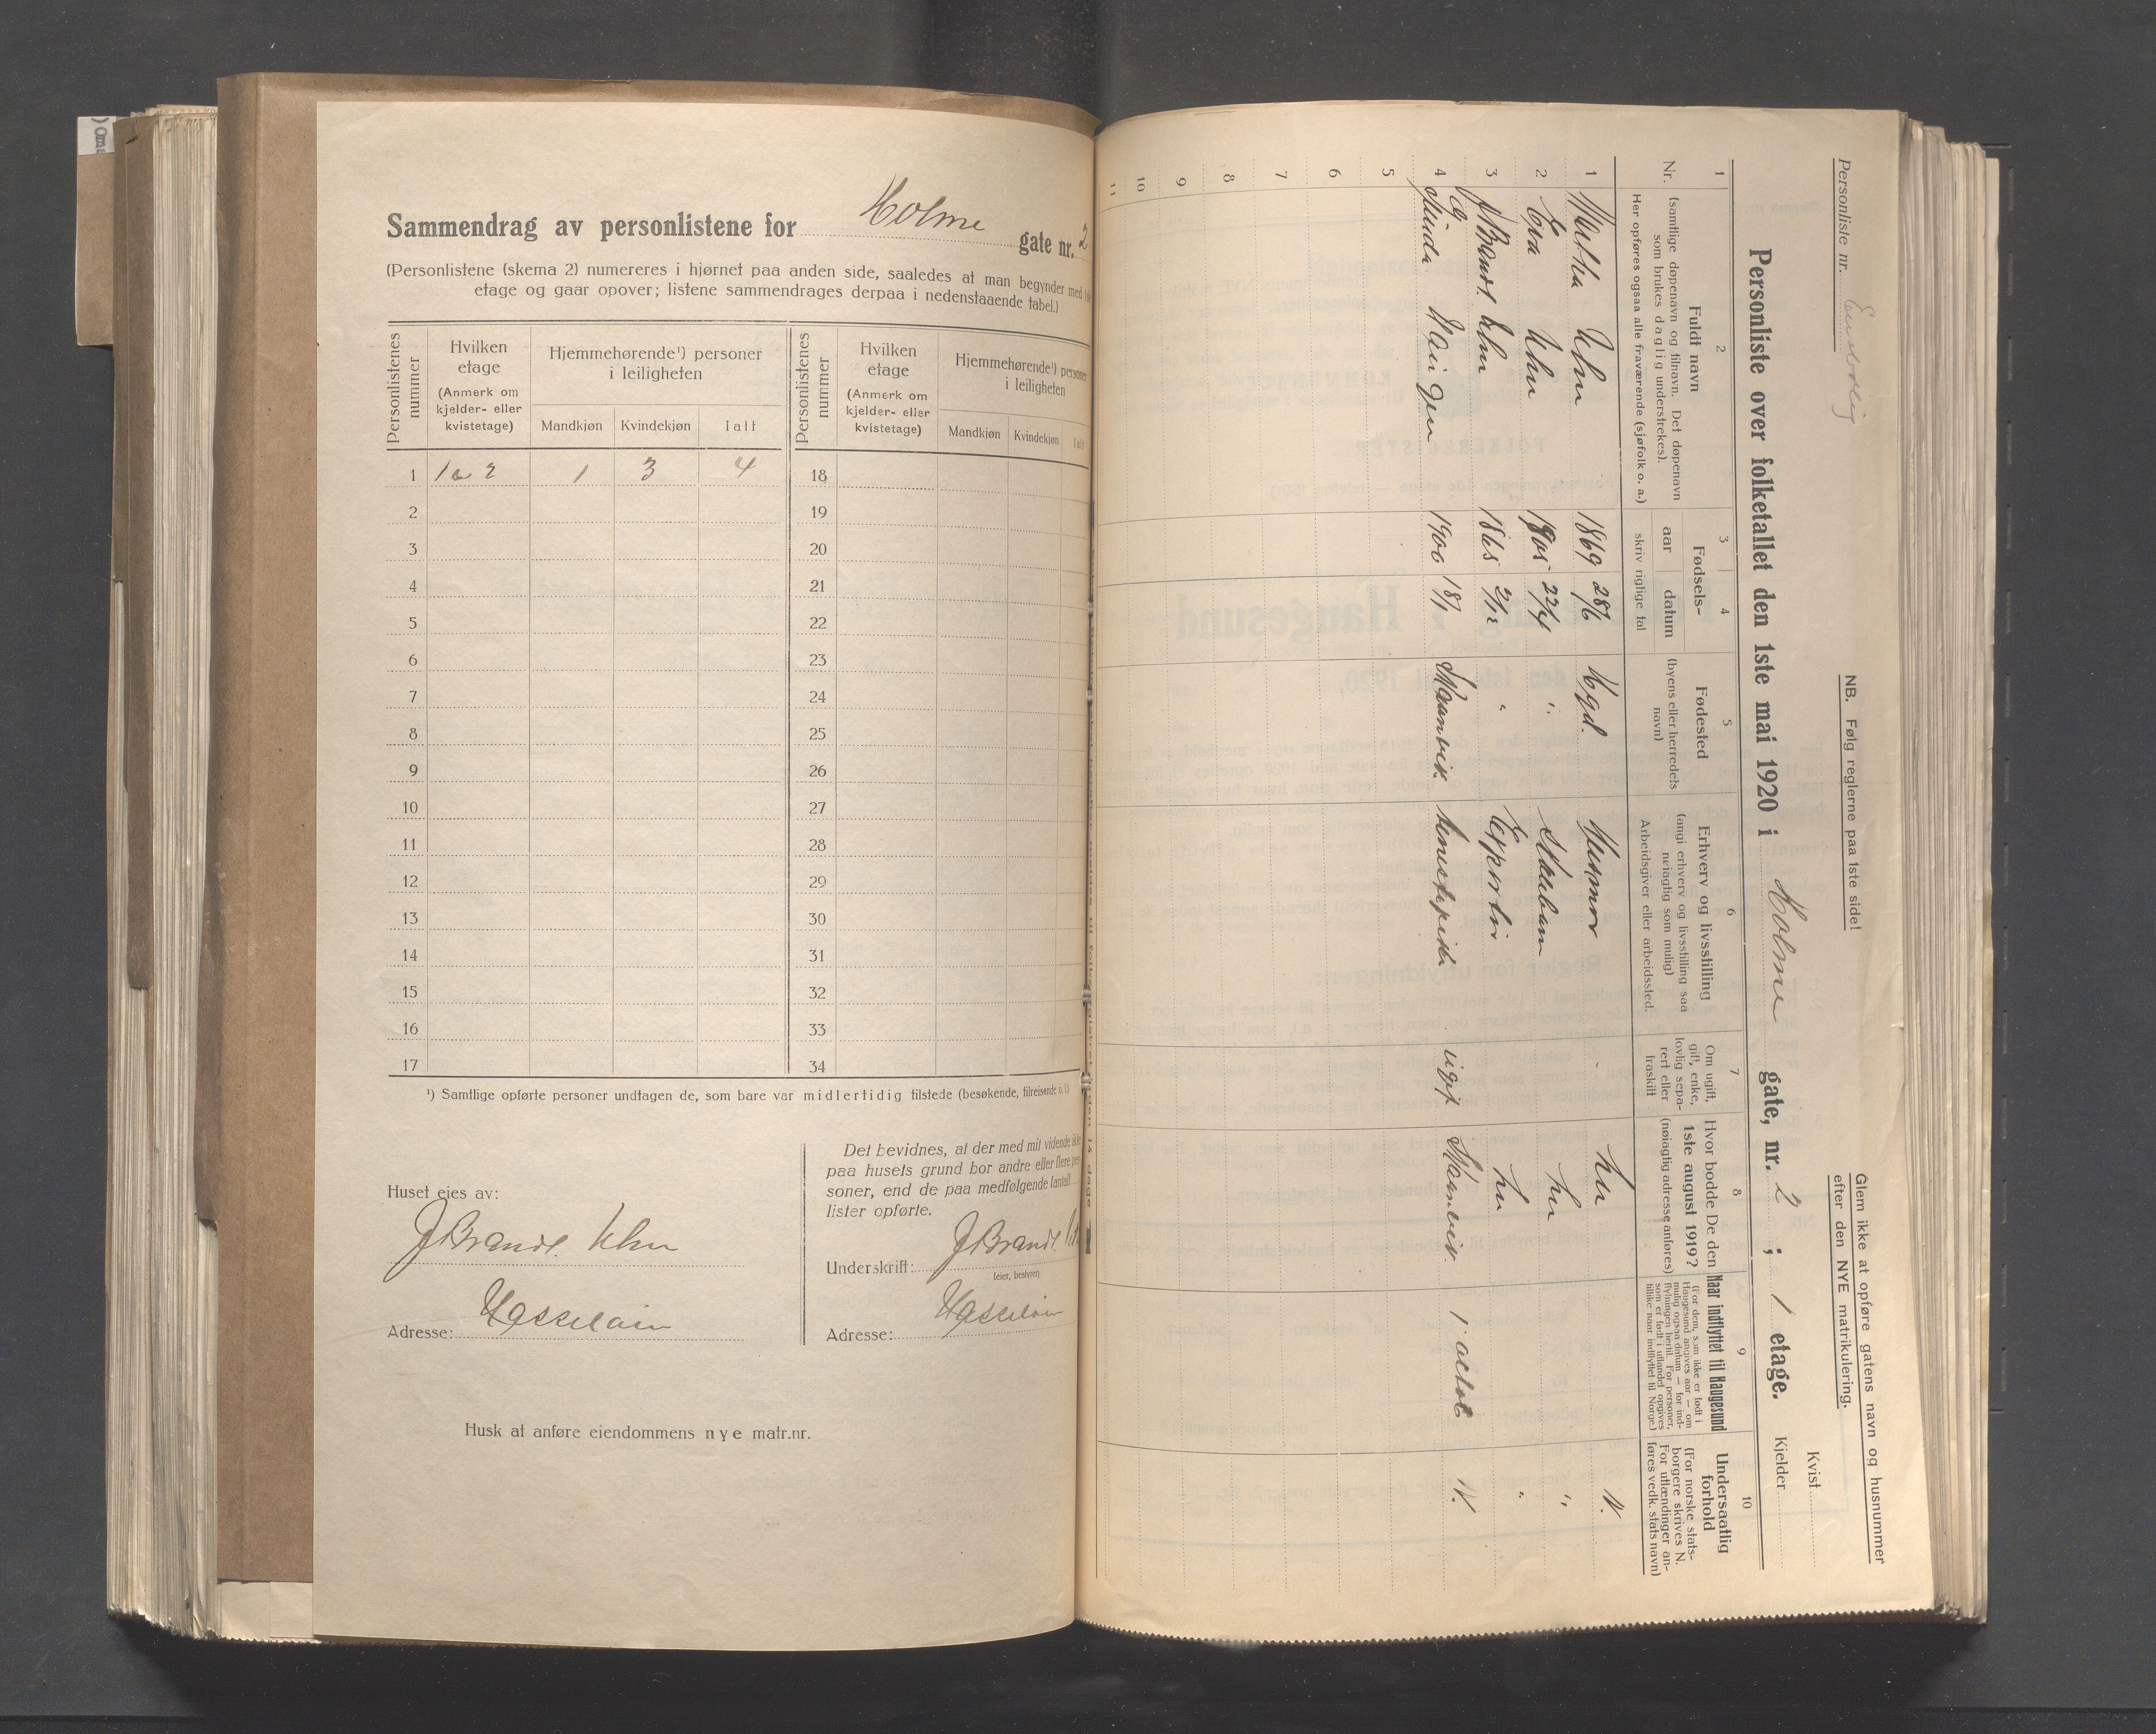 Sammendrag av personlistene for Holme gate nr. 2
(Personlistene (skema 2) numereres i hjørnet paa anden side, saaledes at man begynder med
etage og gaar opover; listene sammendrages derpaa i nedenstaaende tabel.)
Personlistenes nummer
Hvilken etage
(Anmerk om kjelder- eller kvistetage)
Hjemmehørende¹) personer i leiligheten
Mandkjøn Kvindekjøn Ialt
Personlistenes nummer
Hvilken etage
(Anmerk om kjelder- eller kvistetage)
Hjemmehørende¹) personer i leiligheten
Mandkjøn Kvindekjøn Ialt
1 1 a 2 1 3 4 18
2 19
3 20
4 21
5 22
6 23
7 24
8 25
9 26
10 27
11 28
12 29
13 30
14 31
15 32
16 33
17 34
¹) Samtlige opførte personer undtagen de, som bare var midlertidig tilstede (besøkende, tilreisende o. l.)
Huset eies av:
J Brandt. Uhn
Adresse:
Det bevidnes, at der med mit vidende ikke
paa husets grund bor andre eller flere per-
soner, end de paa medfølgende (antall
lister opførte.
Underskrift: J Brandt.
(eier, bestyrer)
Adresse:
Husk at anføre eiendommens nye matr.nr.
Personliste nr. Enebolig
NB. Følg reglerne paa 1ste side!
Glem ikke at opføre gatens navn og husnummer
efter den NYE matrikulering.
Kvist
Personliste over folketallet den 1ste mai 1920 i Holme gate, nr. 2 ; 1 etage.
Kjelder
1 2 3 4 5 6 7 8 9 10
Nr.
Fuldt navn
(samtlige døpenavn og tilnavn. Det døpenavn
som brukes daglig understrekes).
Her opføres ogsaa alle fraværende (sjøfolk o. a.)
Fødsels-
aar datum
skriv rigtige tal
Fødested
(byens eller herredets
navn)
Erhverv og livsstilling
(angi erhverv og livsstilling saa
nøiagtig som mulig)
Arbeidsgiver eller arbeidssted.
Om ugift,
gift, enke,
lovlig sepa-
rert eller
fraskilt
Hvor bodde De den
1ste august 1919?
(nøiagtig adresse anføres)
Naar indflyttet til Haugesund
(For dem, som ikke er født i
Haugesund angives aar — om
mulig ogsaa datum — for ind-
flytningen hertil. For personer,
som er født i utlandet opgives
tillike naar indflyttet til Norge.)
Undersaatlig
forhold
(For norske stats-
borgere skrives N.
For utlændinger an-
føres vedk. stats navn)
1 Martha Uhn 1869 28/6 Hgd. Husmor her N.
2 Eva Uhn 1905 22/4 " Skolebarn her "
3 J Brandt. Uhn 1865 2/12 " Exportør her "
4 1900 18/1 ugift N.
5
6
7
8
9
10
11